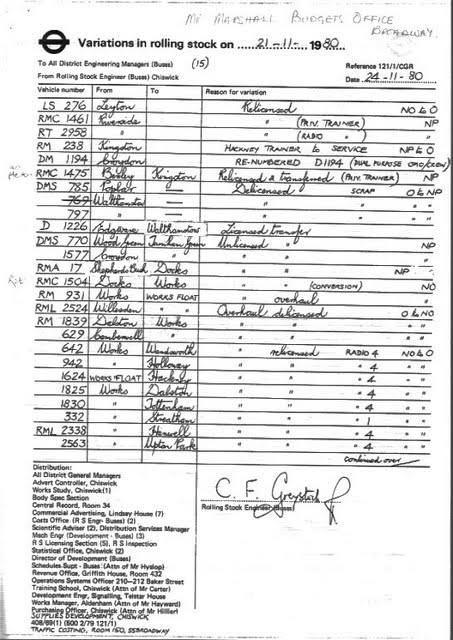 MR MARSHALL BUDGETS OFFICE
BROADWAY.
Variations in rolling stock on ..... 21-11- 1980
To All District Engineering Managers (Buses) (15) Reference 121/1/CGR
From Rolling Stock Engineer (Buses) Chiswick Date 24-11-80
Vehicle number From To Reason for variation
LS 276 Leyton Relicensed NO to O
RMC 1461 Riverside " (PRIV. TRAINER) NP
RT 2958 " " (RADIO " ) "
RM 238 Kingston HACKNEY TRAINER to SERVICE NP to O
DM 1194 Croydon RE-NUMBERED D1194 (DUAL PURPOSE OMO/CREW)
RMC 1475 Bexley Kingston Relicensed & transferred (PRIV. TRAINER) NP
DMS 785 Poplar — Delicensed SCRAP O to NP
769 Walthamstow — " " "
797 " — " " "
D 1226 Edgware Walthamstow Licensed transfer
DMS 770 Wood Green Turnham Green Unlicensed " NP
1577 Croydon " " " "
RMA 17 Shepherds Bush Docks " " NP
RMC 1504 Docks Works " " (CONVERSION) NO
RM 931 Works WORKS FLOAT " overhaul "
RML 2524 Willesden " " Overhaul delicensed O to NO
RM 1839 Dalston Works " " " "
629 Camberwell " " " " "
642 Works Wandsworth " relicensed RADIO 4 NO to O
942 " Holloway " " " 4 " "
1624 WORKS FLOAT Hackney " " " 4 " "
1825 Works Dalston " " " 4 " "
1830 " Tottenham " " " 4 " "
332 " Streatham " " " 1 " "
RML 2338 " Hanwell " " " 4 " "
2563 " Upton Park " " " 4 " "
continued over
Distribution:
All District General Managers
Advert Controller, Chiswick
Works Study, Chiswick(1)
Body Spec Section
Central Record, Room 34
Commercial Advertising, Lindsay House (7)
Costs Office (R S Engr- Buses) (2)
Scientific Adviser (2), Distribution Services Manager
Mech Engr (Development - Buses) (3)
R S Licensing Section (5), R S Inspection
Statistical Office, Chiswick (2)
Director of Development (Buses)
Schedules Supt - Buses (Attn of Mr Hyslop)
Revenue Office, Griffith House, Room 432
Operations Systems Officer 210-212 Baker Street
Training School, Chiswick (Attn of Mr Carter)
Development Engr, Signalling, Telstar House
Works Manager, Aldenham (Attn of Mr Hayward)
Purchasing Officer, Chiswick (Attn of Mr Hillier)
SUPPLIES DEVELOPMENT, CHISWICK
408/69(1) (500 2/79 121/1)
TRAFFIC COSTING, ROOM 150, 55 BROADWAY
C. F. Greystock
Rolling Stock Engineer (Buses)